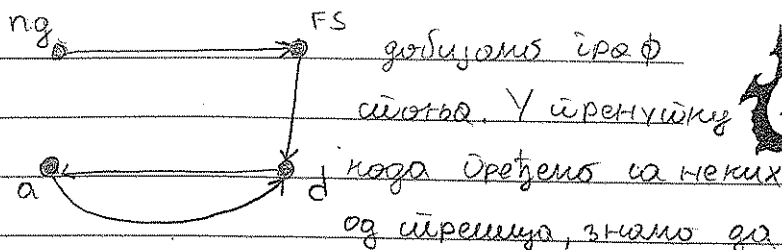 ng FS
добијамо граф
стања. У тренутку
a d када пређемо са неких
од стрелица, знамо да